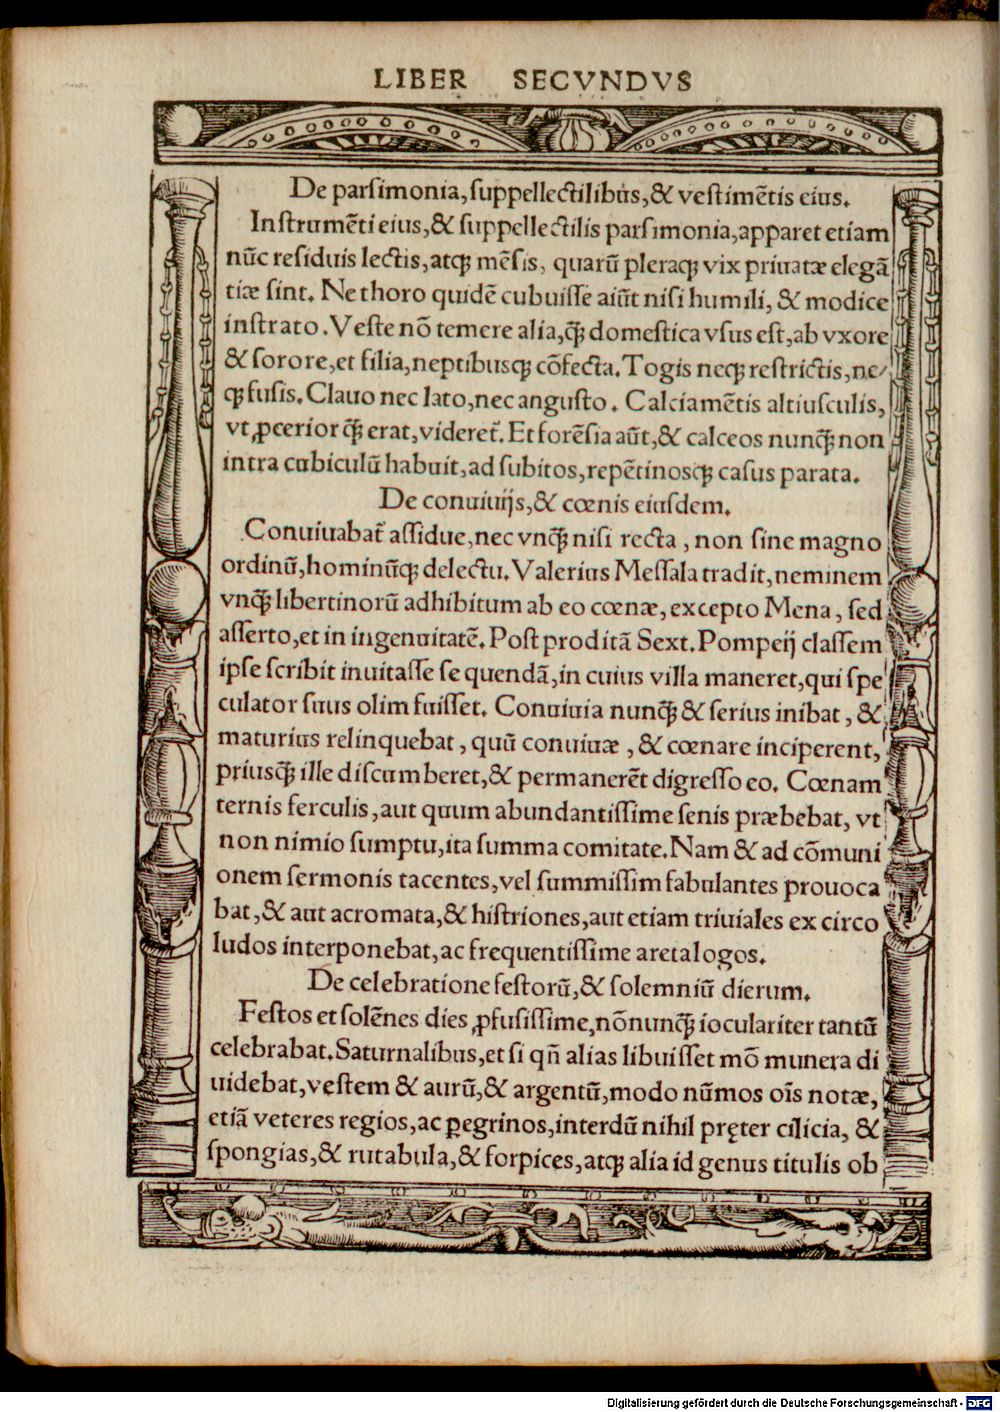 LIBER SECVNDVS
De parsimonia, suppellectilibus, & vestimētis eius.
Instrumēti eius, & suppellectilis parsimonia, apparet etiam
nūc residuis lectis, atq; mēsis, quarū pleraq; vix priuatæ elegā
tiæ sint. Ne thoro quidē cubuisse aiūt nisi humili, & modice
instrato. Veste nō temere alia, q̃ domestica vsus est, ab vxore
& sorore, et filia, neptibusq; cōfecta. Togis neq; restrictis, ne/
q; fusis. Clauo nec lato, nec angusto. Calciamētis altiusculis,
vt ꝓcerior q̃ erat, videret̃. Et forēsia aūt, & calceos nunq̃ non
intra cubiculū habuit, ad subitos, repētinosq; casus parata.
De conuiuijs, & cœnis eiusdem.
Conuiuabat̃ assidue, nec vnq̃ nisi recta, non sine magno
ordinū, hominūq; delectu. Valerius Messala tradit, neminem
vnq̃ libertinorū adhibitum ab eo cœnæ, excepto Mena, sed
asserto, et in ingenuitatē. Post proditā Sext. Pompeij classem
ipse scribit inuitasse se quendā, in cuius villa maneret, qui spe
culator suus olim fuisset. Conuiuia nunq̃ & serius inibat, &
maturius relinquebat, quū conuiuæ, & cœnare inciperent,
priusq̃ ille discumberet, & permanerēt digresso eo. Cœnam
ternis ferculis, aut quum abundantissime senis præbebat, vt
non nimio sumptu, ita summa comitate. Nam & ad cōmuni
onem sermonis tacentes, vel summissim fabulantes prouoca
bat, & aut acromata, & histriones, aut etiam triuiales ex circo
ludos interponebat, ac frequentissime aretalogos.
De celebratione festorū, & solemniū dierum.
Festos et solēnes dies ꝓfusissime, nōnunq̃ ioculariter tantū
celebrabat. Saturnalibus, et si qñ alias libuisset mō munera di
uidebat, vestem & aurū, & argentū, modo nūmos oīs notæ,
etiā veteres regios, ac ꝑegrinos, interdū nihil pręter cilicia, &
spongias, & rutabula, & forpices, atq; alia id genus titulis ob
Digitalisierung gefördert durch die Deutsche Forschungsgemeinschaft - DFG